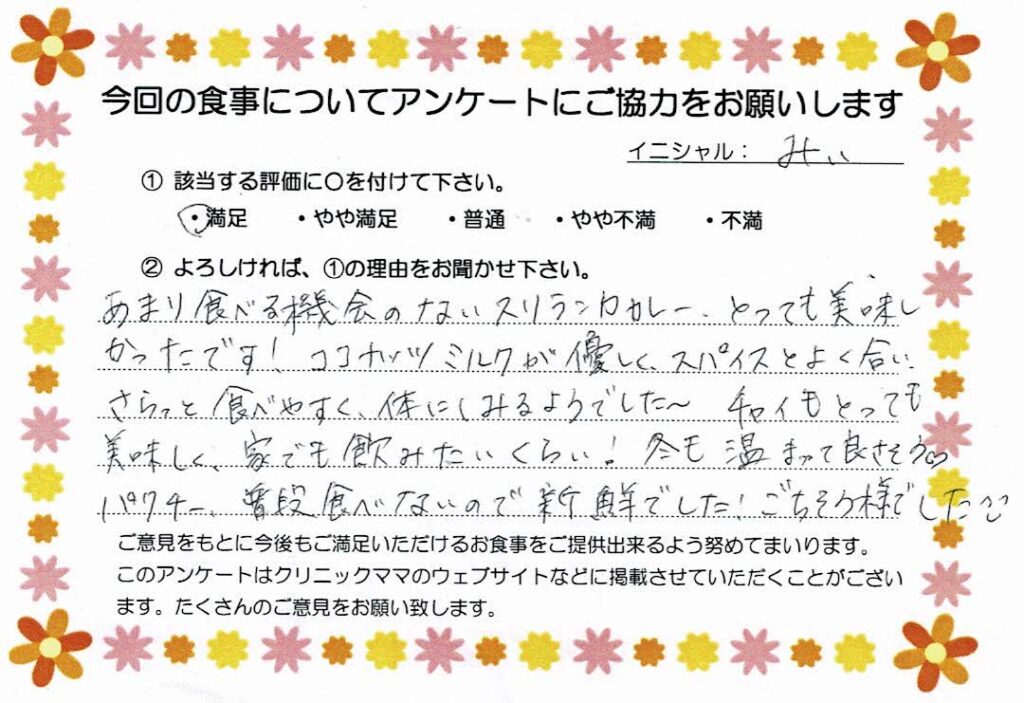 今回の食事についてアンケートにご協力をお願いします
イニシャル： みい
① 該当する評価に○を付けて下さい。
・満足 ・やや満足 ・普通 ・やや不満 ・不満
② よろしければ、①の理由をお聞かせ下さい。
あまり食べる機会のないスリランカカレー、とっても美味し
かったです！ ココナッツミルクが優しく、スパイスとよく合い、
さらっと食べやすく、体にしみるようでした〜 チャイもとっても
美味しく、家でも飲みたいくらい！ 冬も温まって良さそう
パクチー、普段食べないので新鮮でした！ごちそう様でした
ご意見をもとに今後もご満足いただけるお食事をご提供出来るよう努めてまいります。
このアンケートはクリニックママのウェブサイトなどに掲載させていただくことがござい
ます。たくさんのご意見をお願い致します。